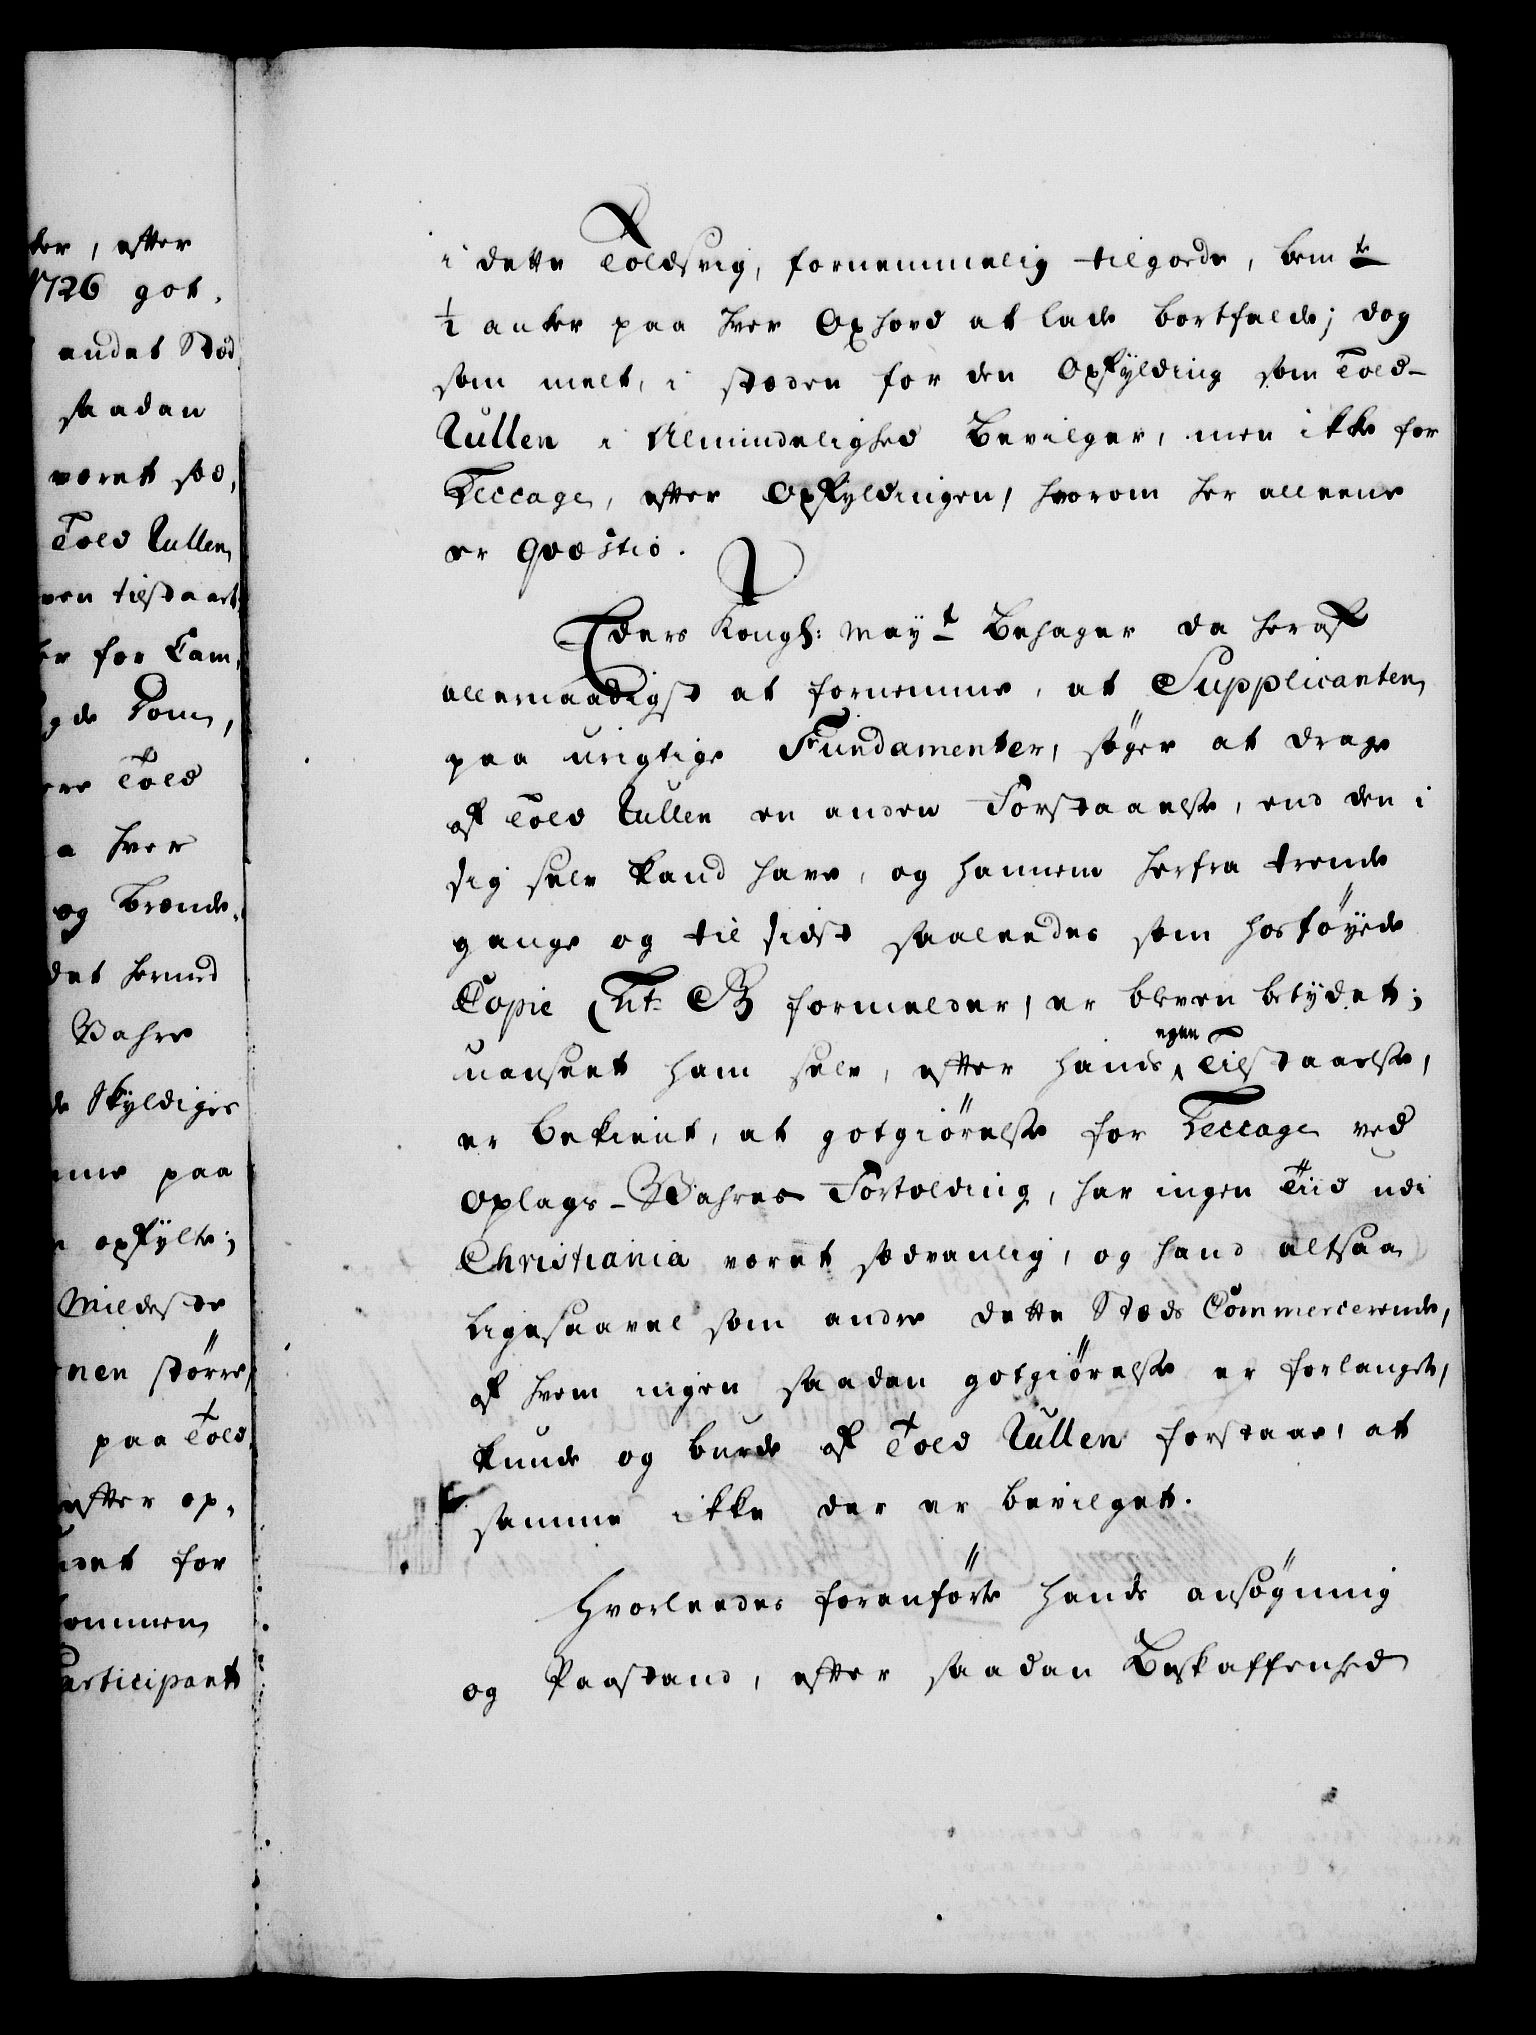 ker, efter
1726 got,
andet Stæd
saadan
været sæd,
Told Rullen
ven tilstaaet
er for Cam,
gde Tom,
ere Told
a hver
og Brænde,
det herved
Vahre
de Skyldiger
me paa
opfylte;
Mildeste
nen større,
paa Told
efter op,
det for
kommen
Participant
i dette Toldsvig, fornemmelig tilgode, bemte
½ anker paa hver Oxhovd at lade bortfalde; dog
som melt, i stæden for den Opfylding som Told-
Rullen i Almindelighed Bevilger, men ikke for
Leccage, efter Opfyldingen, hvorom her alleene
er Qvæstio.
Eders Kongl: Mayt Behager da heraf
allernaadigst at fornemme, at Supplicanten
paa urigtige Fundamenter, søger at drage
af Told Rullen en anden Forstaaelse, end den i
sig selv kand have, og hannem herfra trende
gange og til sidst saaleedes som hosføyede
Copie Lit: B formelder, er bleven betydet;
uanseet ham selv, efter hands egen Tilstaaelse,
er bekient, at gotgiørelse for Leccage ved
Oplags-Vahres Fortolding, har ingen Tiid udi
Christiania været sædvanlig, og hand altsaa
ligesaavel som andre dette Stæds Commercerende,
af hvem ingen saadan gotgiørelse er forlanget,
kunde og burde af Told Rullen forstaae, at
samme ikke der er bevilget.
Hvorleedes foranførte hands ansøgning
og Paastand, efter saadan Beskaffenhed